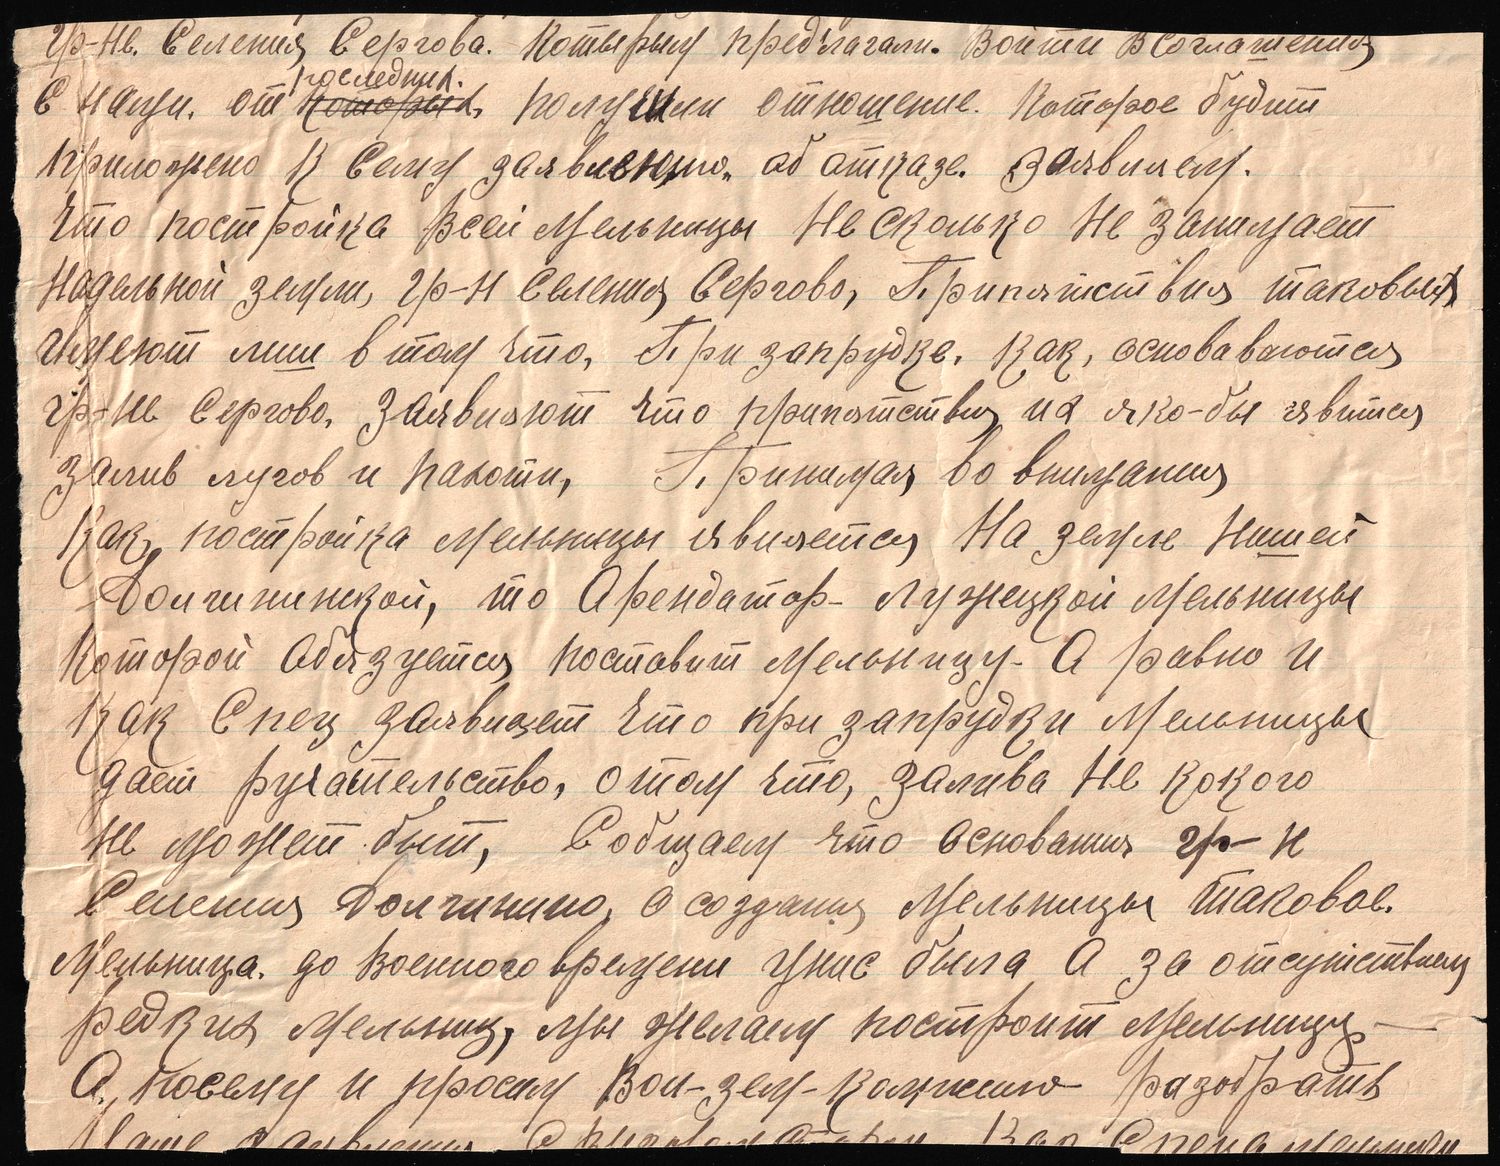 гр-не. Селения Сергова. Которым предлагали. Войти в соглашения
с нами. от последних. которых получили отношение. Которое будит
приложено к сему заявлению. об отказе. заявляем.
что постройка всей мельницы Не сколько не занимает
надельной земли, гр-н селения Сергово, Припятствия таковых
имеют лиш в том что, При запрудке. как, основаваются
гр-не Сергово. заявляют что припятствия их яко-бы явится
залив лугов и пакоти, Принимая во внимания
как постройка мельницы является на земле Нашей
Долгининской, то Арендатор- Лужецкой мельницы
Которой Обязуется поставит мельницу- А равно и
как Спец заявляет что при запрудки Мельницы
дает ручательство, о том что, залива Не кокого
не может быт, Собщаем что основания гр-н
Селения Долгинино, о создания Мельницы таковое.
Мельница. до военного времени унас была А за отсутствием
редких мельниц, мы желаем построит мельницу-
А, посему и просим Вол-зем-комиссию разобрать
Наше заявления